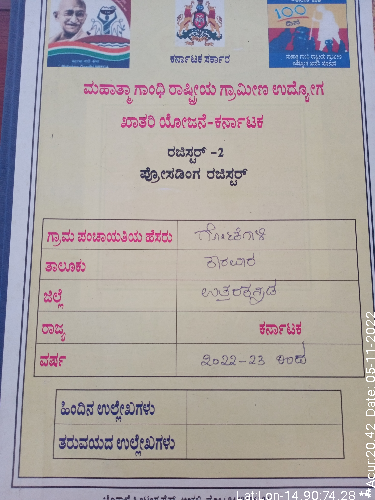 ಕರ್ನಾಟಕ ಸರ್ಕಾರ
100
ಮಹಾತ್ಮಾ ಗಾಂಧಿ ರಾಷ್ಟ್ರೀಯ ಗ್ರಾಮೀಣ ಉದ್ಯೋಗ
ಖಾತರಿ ಯೋಜನೆ-ಕರ್ನಾಟಕ
ರಜಿಸ್ಟರ್ -2
ಪ್ರೋಸಡಿಂಗ ರಜಿಸ್ಟರ್
ಗ್ರಾಮ ಪಂಚಾಯತಿಯ ಹೆಸರು
ತಾಲೂಕು ಕಾರವಾರ
ಜಿಲ್ಲೆ ಉತ್ತರಕನ್ನಡ
ರಾಜ್ಯ ಕರ್ನಾಟಕ
ವರ್ಷ 2022-23
ಹಿಂದಿನ ಉಲ್ಲೇಖಗಳು
ತರುವಯದ ಉಲ್ಲೇಖಗಳು
Lat:Lon-14.90:74.28
Date: 05-11-2022